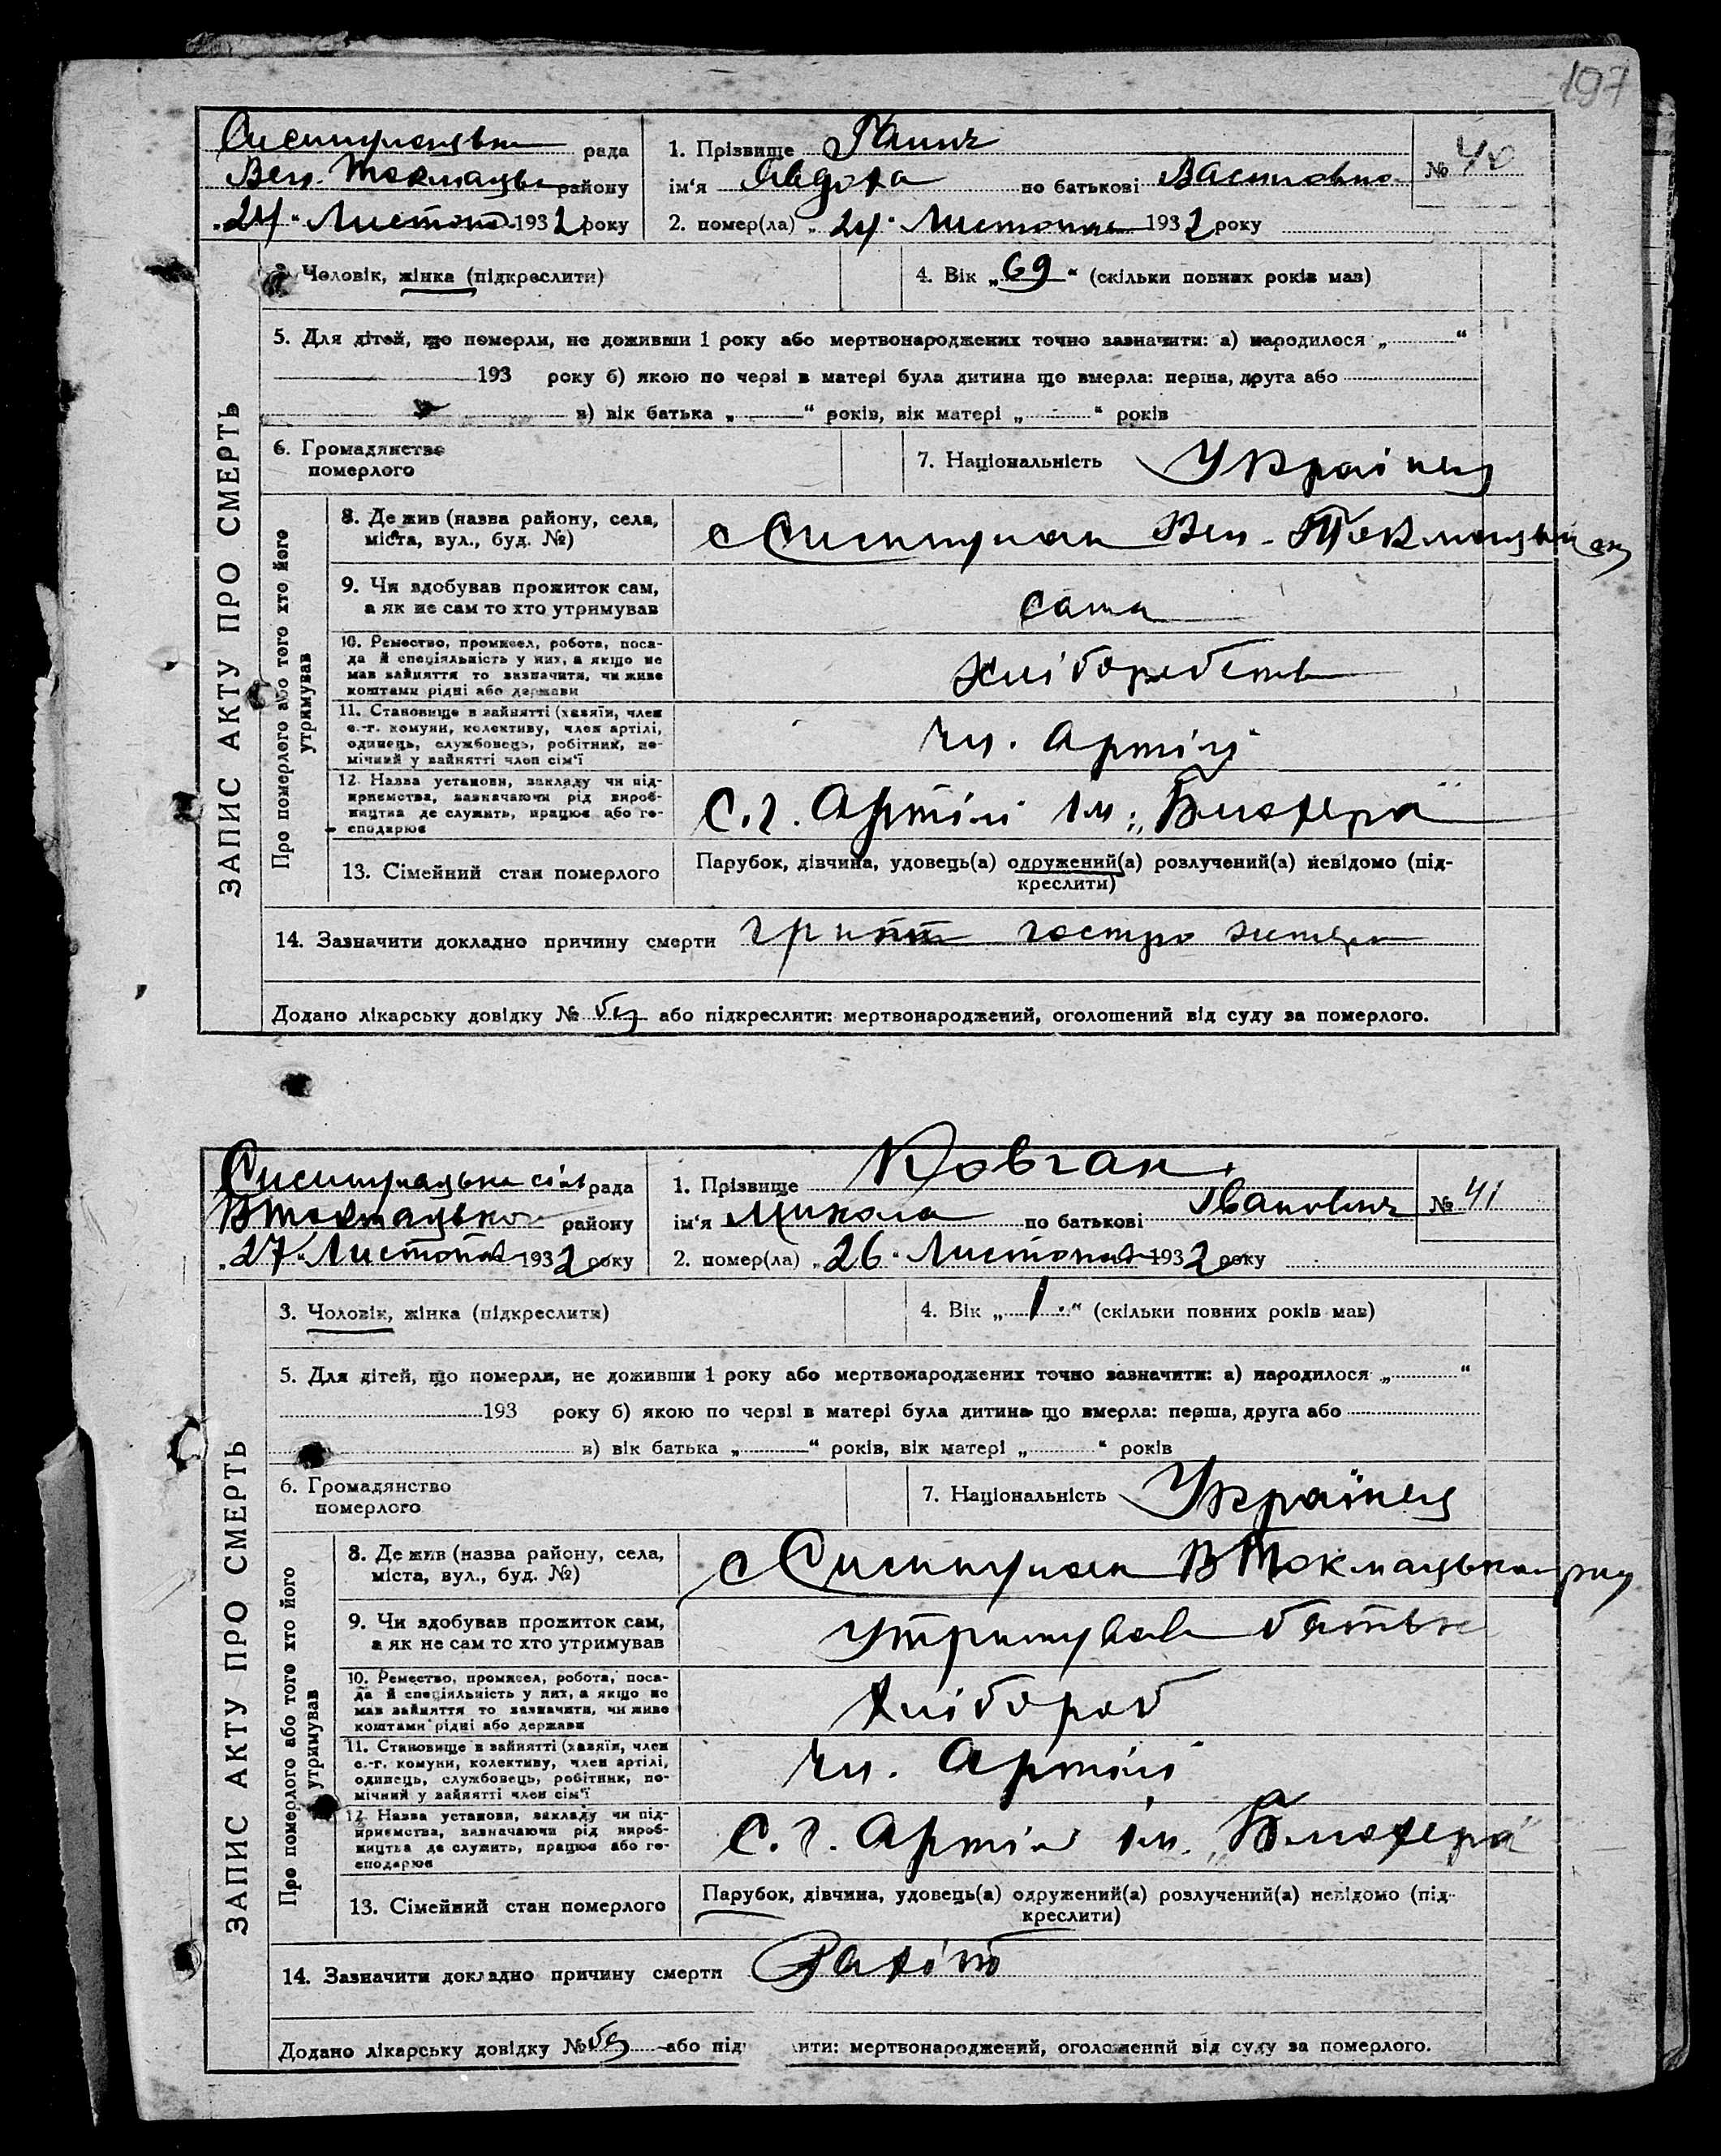 197
рада
Вел. Токмацьк району
„24“ Листопад 1932 року
1. Прізвище
ім'я Явдоха по батькові Василівна
№ 40
2. помер(ла) „24“ Листопад 1932 року
ЗАПИС АКТУ ПРО СМЕРТЬ
3. Чоловік, жінка (підкреслити)
4. Вік „69“ (скільки повних років мав)
5. Для дітей, що померли, не доживши 1 року або мертвонароджених точно зазначити: а) народилося „ “
193 року б) якою по черзі в матері була дитина що вмерла: перша, друга або
в) вік батька „ “ років, вік матері „ “ років
6. Громадянство
померлого
7. Національність Українец
Про померлого або того хто його
утримував
8. Де жив (назва району, села,
міста, вул., буд. №)
с Вел. Токмацьк
9. Чи здобував прожиток сам,
а як не сам то хто утримував
сама
10. Ремество, промисел, робота, поса-
да й спеціяльність у них, а якщо не
мав зайняття то зазначити, чи живе
коштами рідні або держави
Хліборобств
11. Становище в зайнятті (хазяїн, член
с.-г. комуни, колективу, член артілі,
одинець, службовець, робітник, по-
мічний у зайнятті член сім'ї
чл. Артілі
12. Назва установи, закладу чи під-
приємства, зазначаючи рід вироб-
ництва де служить, працює або го-
сподарює
С.г. Артілі ім. „Блюхера“
13. Сімейний стан померлого
Парубок, дівчина, удовець(а) одружений(а) розлучений(а) невідомо (під-
креслити)
14. Зазначити докладно причину смерти грипп гастро
Додано лікарську довідку № без або підкреслити: мертвонароджений, оголошений від суду за померлого.
рада
ВТокмацько району
„27“ Листопад 1932 року
1. Прізвище Ковган
ім'я Микола по батькові Іванович
№ 41
2. помер(ла) „26“ Листопад 1932 року
ЗАПИС АКТУ ПРО СМЕРТЬ
3. Чоловік, жінка (підкреслити)
4. Вік „1“ (скільки повних років мав)
5. Для дітей, що померли, не доживши 1 року або мертвонароджених точно зазначити: а) народилося „ “
193 року б) якою по черзі в матері була дитина що вмерла: перша, друга або
в) вік батька „ “ років, вік матері „ “ років
6. Громадянство
померлого
7. Національність Українец
Про померлого або того хто його
утримував
8. Де жив (назва району, села,
міста, вул., буд. №)
с ВТокмацько
9. Чи здобував прожиток сам,
а як не сам то хто утримував
утримував батько
10. Ремество, промисел, робота, поса-
да й спеціяльність у них, а якщо не
мав зайняття то зазначити, чи живе
коштами рідні або держави
Хлібороб
11. Становище в зайнятті (хазяїн, член
с.-г. комуни, колективу, член артілі,
одинець, службовець, робітник, по-
мічний у зайнятті член сім'ї
чл. Артілі
12. Назва установи, закладу чи під-
приємства, зазначаючи рід вироб-
ництва де служить, працює або го-
сподарює
С.г. Артілі ім. „Блюхера“
13. Сімейний стан померлого
Парубок, дівчина, удовець(а) одружений(а) розлучений(а) невідомо (під-
креслити)
14. Зазначити докладно причину смерти Рахіт
Додано лікарську довідку № без або під ити: мертвонароджений, оголошений від суду за померлого.